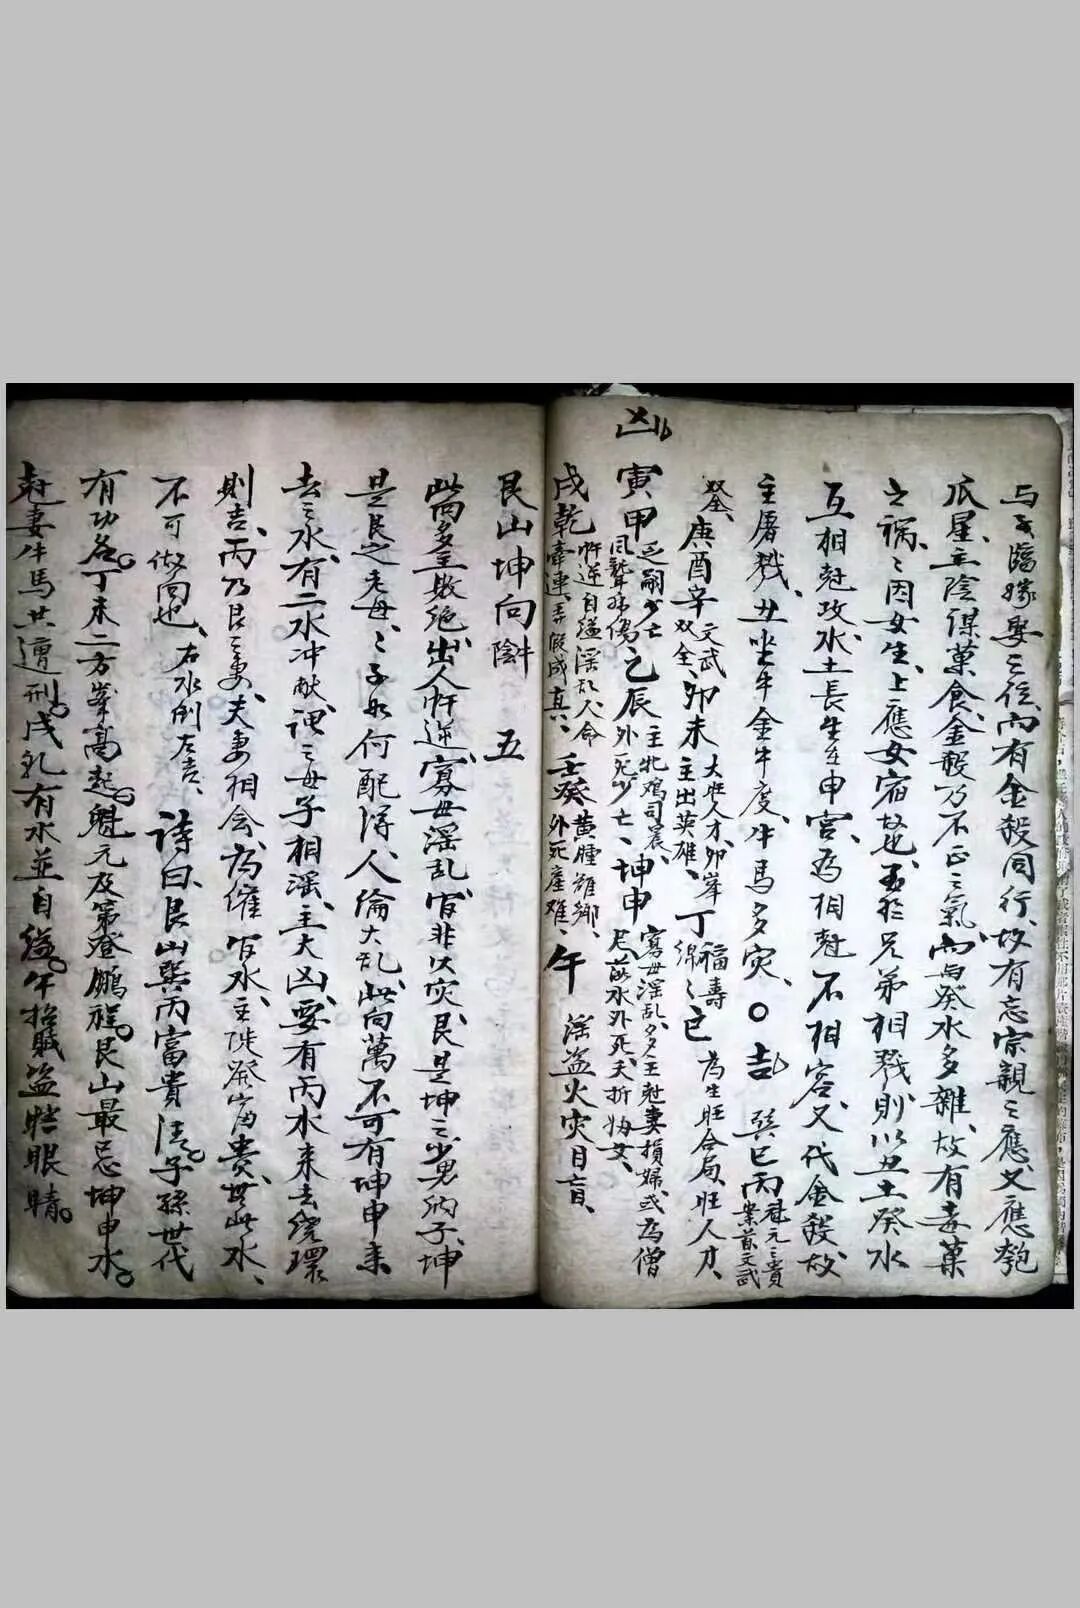 与臨嫁娶之位而有金殺同行、故有忘宗親之應、又應匏
瓜星、主陰謀菓食、金殺乃不正之氣、而与癸水多雜、故有毒菓
之禍、、因女生、上應女宿故也、至於兄弟相戮、則以丑土癸水
互相尅攻、水土長生在申宮、為相尅不相容、又代金殺、故
主屠戮、丑坐牛金牛度、牛馬多灾、〇吉 巽巳丙 魁元之貴案首文武
双全、庚酉辛 文武双全、卯未 大旺人才、卯峯主出英雄、丁 福壽綿、、巳 為生旺合局、旺人才、
凶 寅甲 乏嗣少亡風聾殘傷 乙辰 主牝鸡司晨、外死少亡、坤申 寡母淫乱、多主尅妻損婦或為僧尼、水外死、夭折娼女、
戌乾 忤逆自縊淫乱人命牽連、弄假成真、壬癸 黄腫離鄉、外死產难、午 淫盗火灾目盲、
艮山坤向陰 五
此向多主敗绝、出人忤逆、寡母淫乱、官非火灾、艮是坤之少男的子、坤
是艮之老母、、子如何配得、人倫大乱、此向萬不可有坤申来
去之水、有二水冲献、謂之母子相淫、主大凶、要有丙水来去繞環
則吉、丙乃艮之妻、夫妻相会、為催官水、主陡發富貴、無此水、
不可做向也、右水倒左吉、詩曰、艮山巽丙富貴清。子孫世代
有功名。丁未二方峯高起。魁元及第登鵬程。艮山最忌坤申水。
尅妻牛馬共遭刑。戌乾有水並自縊。午招贼盗瞎眼睛。